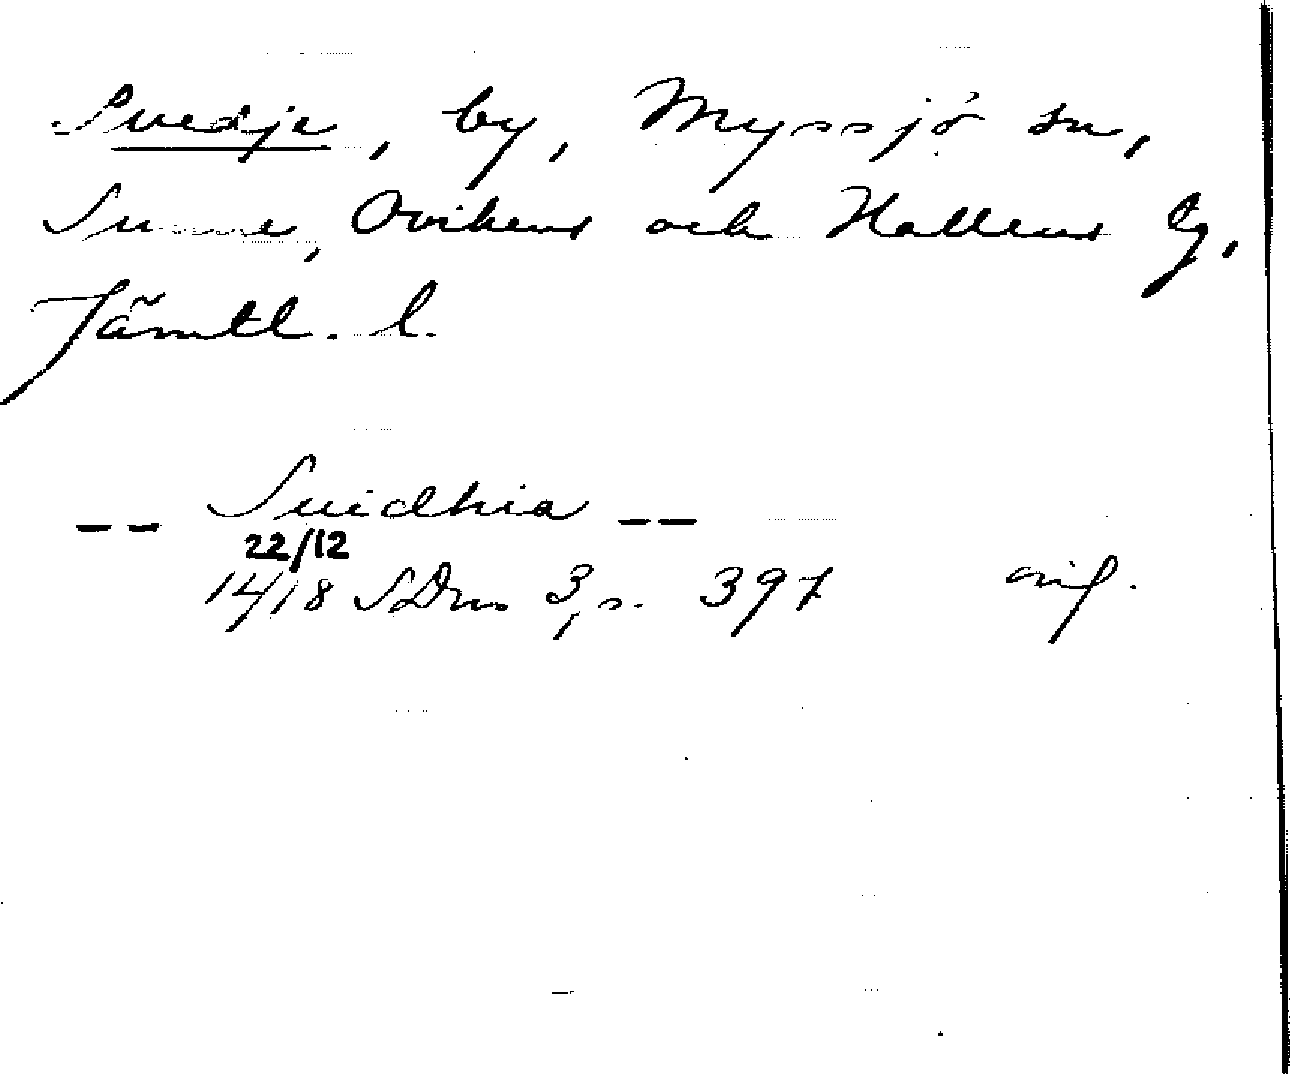 Svedje, by, Myssjö sn,
Sunne, Ovikens och Hallens tg,
Jämtl. l.
-- Suidhia --
22/12
1418 SDns 3, s. 397 orig.